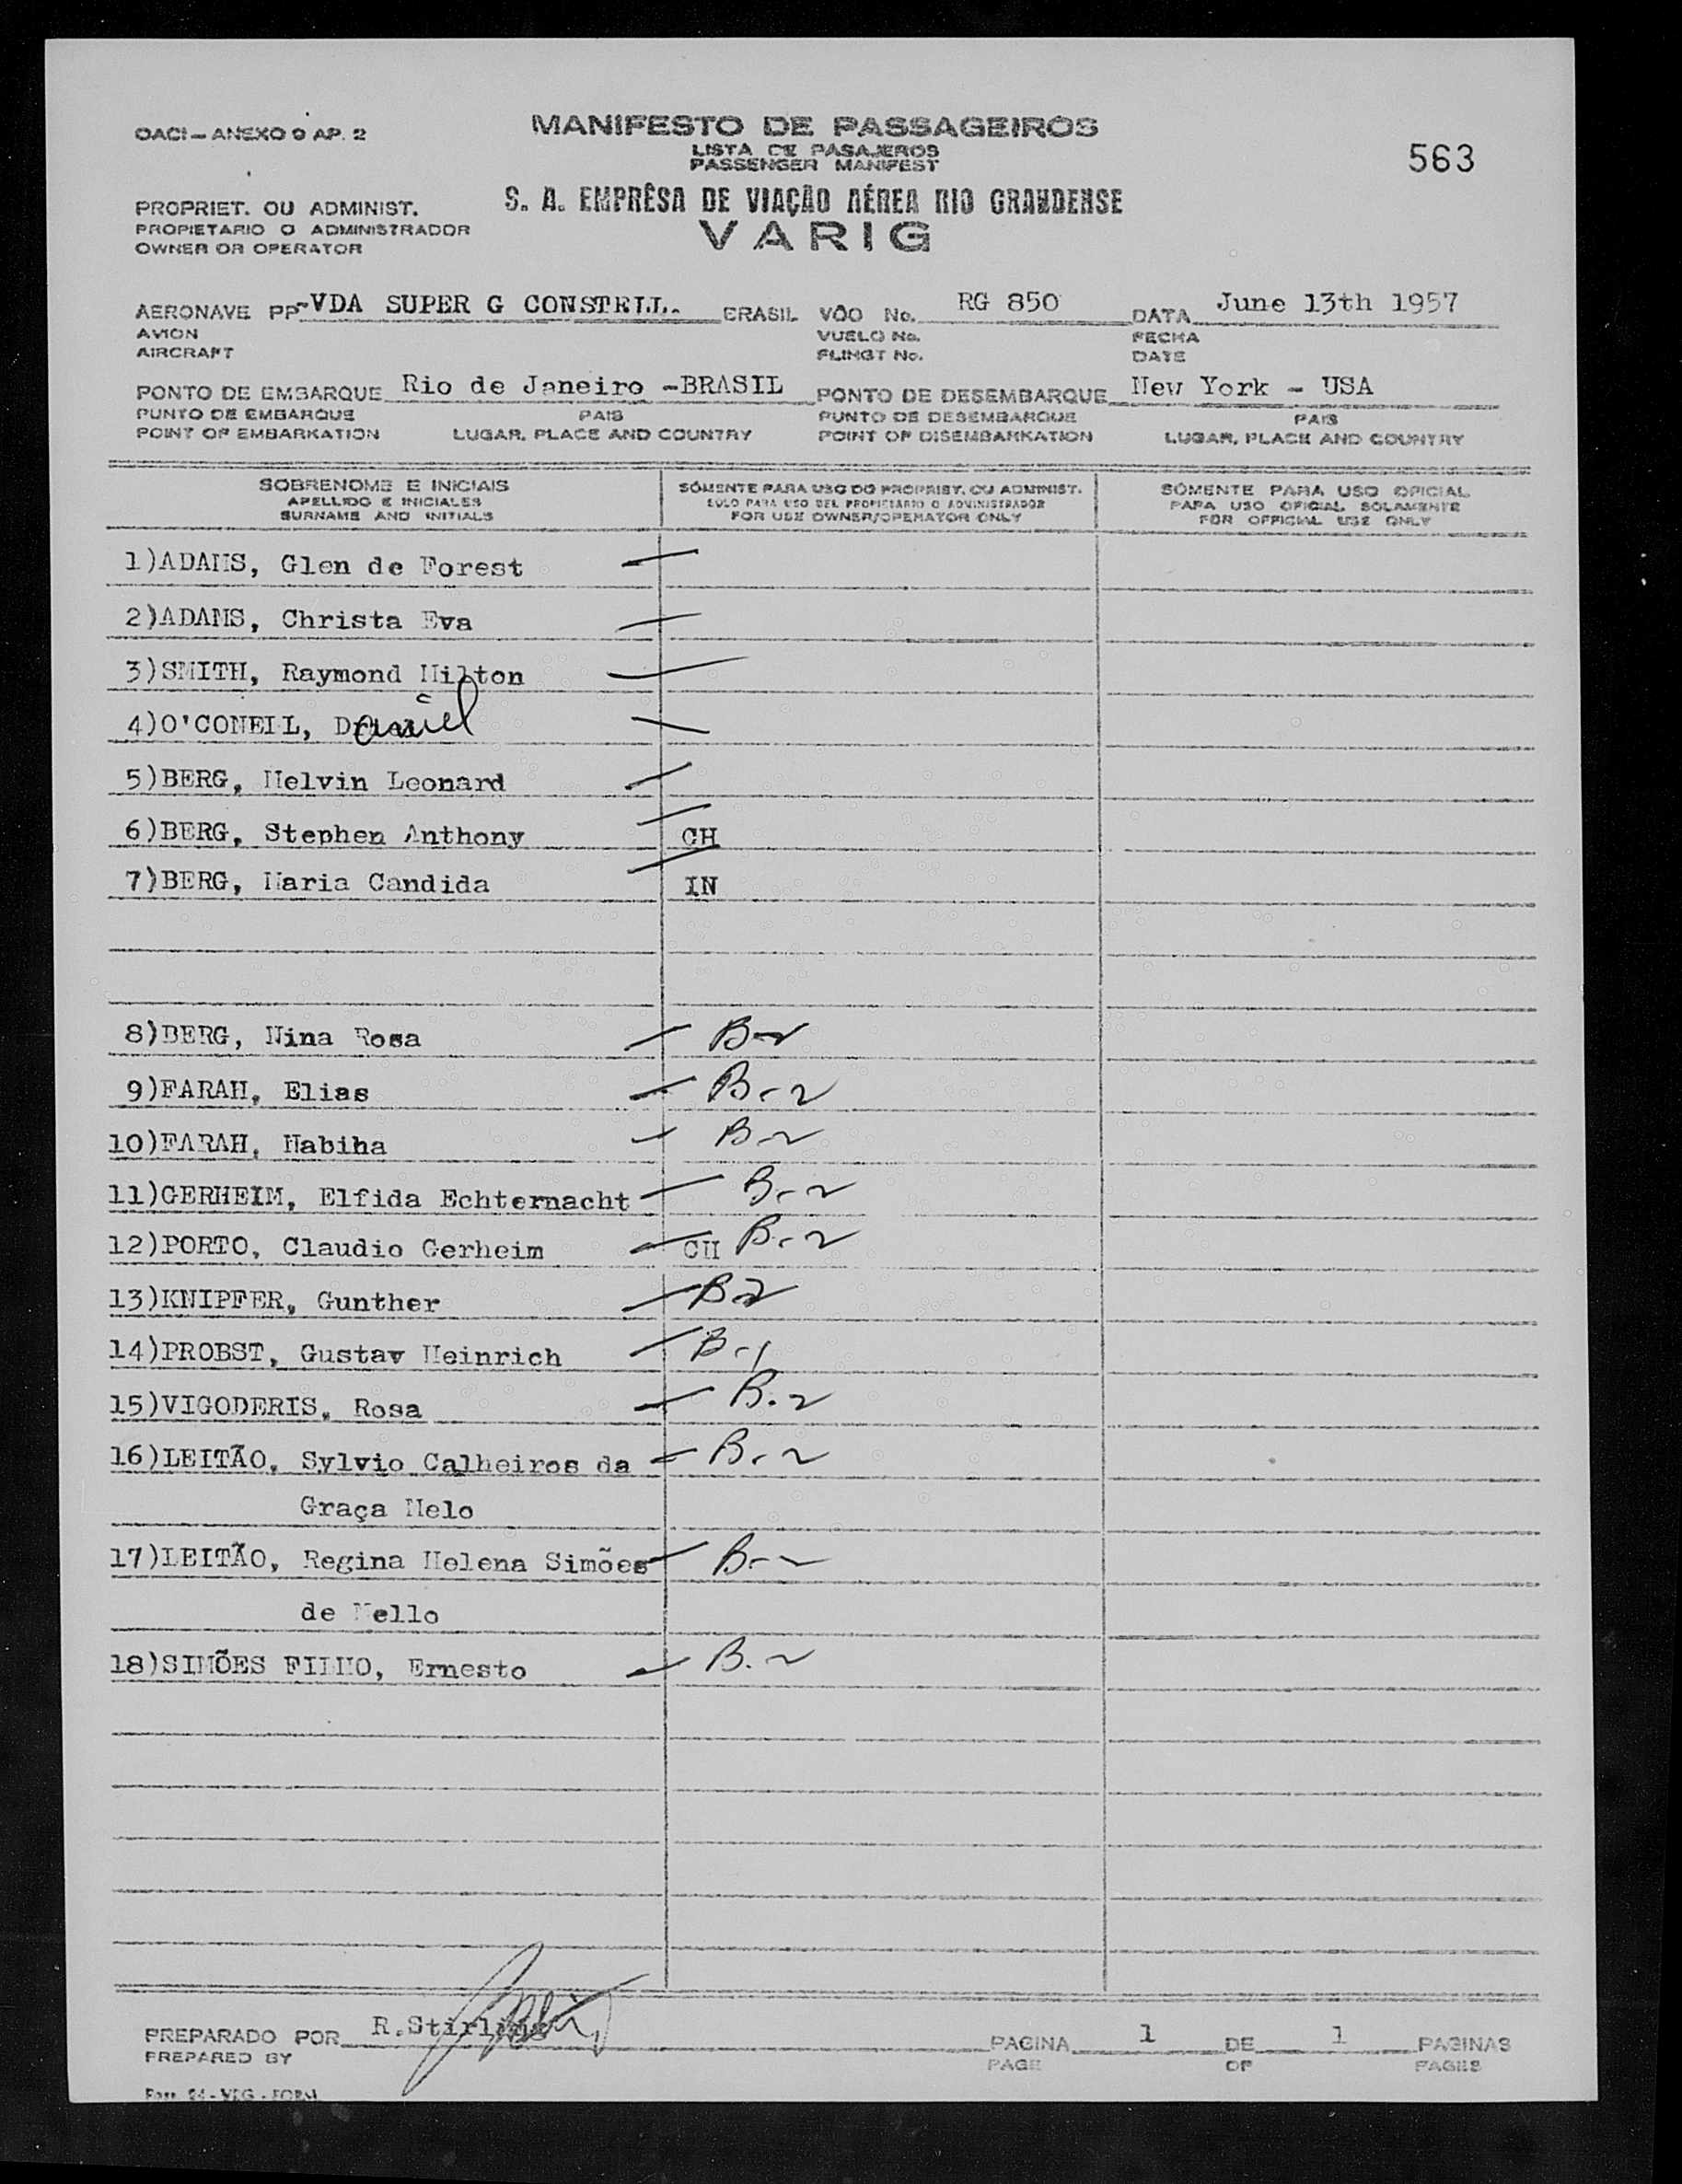 OACI - ANEXO 9 AP. 2
MANIFESTO DE PASSAGEIROS
LISTA DE PASAJEROS
PASSENGER MANIFEST
563
S. A. EMPRÊSA DE VIAÇÃO AÉREA RIO GRANDENSE
VARIG
PROPRIET. OU ADMINIST.
PROPIETARIO O ADMINISTRADOR
OWNER OR OPERATOR
AERONAVE PP-VDA SUPER G CONSTELL. BRASIL VÔO No. RG 850 DATA June 13th 1957
AVION VUELO No. FECHA
AIRCRAFT FLINGT No. DATE
PONTO DE EMBARQUE Rio de Janeiro -BRASIL PONTO DE DESEMBARQUE New York - USA
PUNTO DE EMBARQUE PAIS PUNTO DE DESEMBARQUE PAIS
POINT OF EMBARKATION LUGAR, PLACE AND COUNTRY POINT OF DISEMBARKATION LUGAR, PLACE AND COUNTRY
SOBRENOME E INICIAIS SÓMENTE PARA USO DO PROPRIET. OU ADMINIST. SÓMENTE PARA USO OFICIAL
APELLIDO E INICIALES SOLO PARA USO DEL PROPIETARIO O ADMINISTRADOR PAPA USO OFICIAL SOLAMENTE
SURNAME AND INITIALS FOR USE OWNER/OPERATOR ONLY FOR OFFICIAL USE ONLY
1)ADAMS, Glen de Forest
2)ADAMS, Christa Eva
3)SMITH, Raymond Milton
4)O'CONEIL, Daniel
5)BERG, Melvin Leonard
6)BERG, Stephen Anthony CH
7)BERG, Maria Candida IN
8)BERG, Nina Rosa B-2
9)FARAH, Elias B-2
10)FARAH, Nabiha B-2
11)GERHEIM, Elfida Echternacht B-2
12)PORTO, Claudio Gerheim CH B-2
13)KNIPFER, Gunther B-2
14)PROBST, Gustav Heinrich B-1
15)VIGODERIS, Rosa B-2
16)LEITÃO, Sylvio Calheiros da B-2
Graça Melo
17)LEITÃO, Regina Helena Simões B-2
de Mello
18)SIMÕES FILHO, Ernesto B-2
PREPARADO POR R.Stirling PAGINA 1 DE 1 PAGINAS
PREPARED BY PAGE OF PAGES